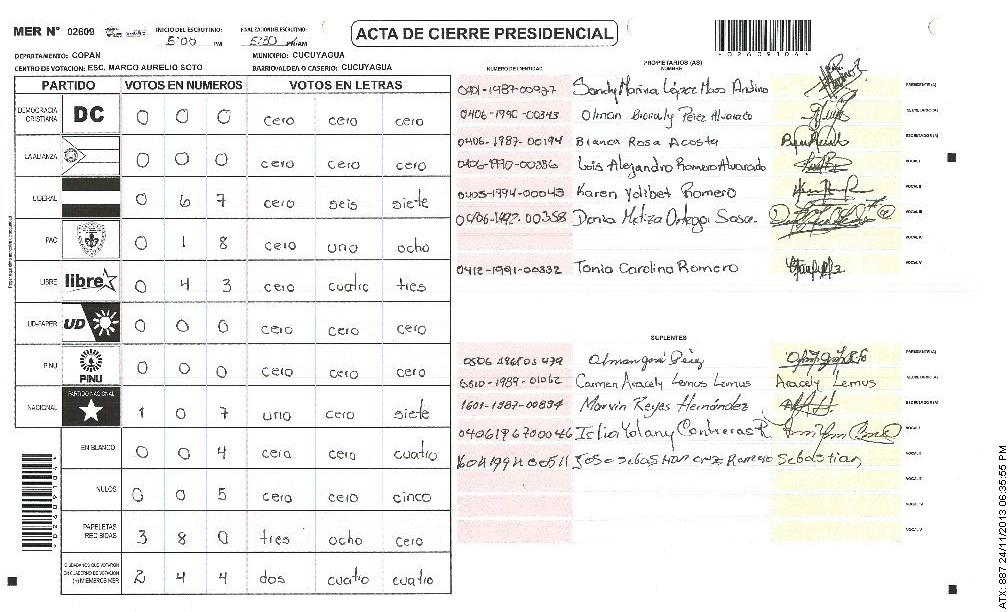 MER N° 02609 INICIO DEL ESCRUTINIO: 5:00 PM FINALIZACION DEL ESCRUTINIO: 5:30 PM/AM
ACTA DE CIERRE PRESIDENCIAL
DEPARTAMENTO: COPAN MUNICIPIO: CUCUYAGUA
CENTRO DE VOTACION: ESC. MARCO AURELIO SOTO BARRIO/ALDEA O CASERIO: CUCUYAGUA
PARTIDO VOTOS EN NUMEROS VOTOS EN LETRAS
DEMOCRACIA CRISTIANA DC 0 0 0 cero cero cero
LA ALIANZA 0 0 0 cero cero cero
LIBERAL 0 6 7 cero seis siete
PAC 0 1 8 cero uno ocho
LIBRE libre 0 4 3 cero cuatro tres
UD-FAPER UD 0 0 0 cero cero cero
PINU PINU 0 0 0 cero cero cero
NACIONAL PARTIDO NACIONAL 1 0 7 uno cero siete
EN BLANCO 0 0 4 cero cero cuatro
NULOS 0 0 5 cero cero cinco
PAPELETAS RECIBIDAS 3 8 0 tres ocho cero
CIUDADANOS QUE VOTARON EN CUADERNO DE VOTACION (+) MIEMBROS MER 2 4 4 dos cuatro cuatro
0260910 4
NUMERO DE IDENTIDAD PROPIETARIOS (AS) NOMBRE
0401-1987-00927 Sandy Marina López Andino PRESIDENTE (A)
0406-1990-00343 Olman Pérez Alvarado SECRETARIO (A)
0406-1987-00194 Blanca Rosa Acosta ESCRUTADOR (A)
0406-1990-00386 Luis Alejandro Romero Alvarado VOCAL I
0405-1994-00043 Karen Ydibet Romero VOCAL II
0406-1992-00358 Ortega Sosa VOCAL III
VOCAL IV
0412-1991-00332 Tania Carolina Romero VOCAL V
SUPLENTES
Olman José Pérez PRESIDENTE (A)
1989-01062 Carmen Aracely Lemus Lemus Aracely Lemus SECRETARIO (A)
1601-1987-00894 Marvin Reyes Hernández ESCRUTADOR (A)
0406196700046 Yolany Contreras R VOCAL I
José Sebastian Cruz Romero Sebastian VOCAL II
VOCAL III
VOCAL IV
VOCAL V
ATX: 887 24/11/2013 06:35:55 PM